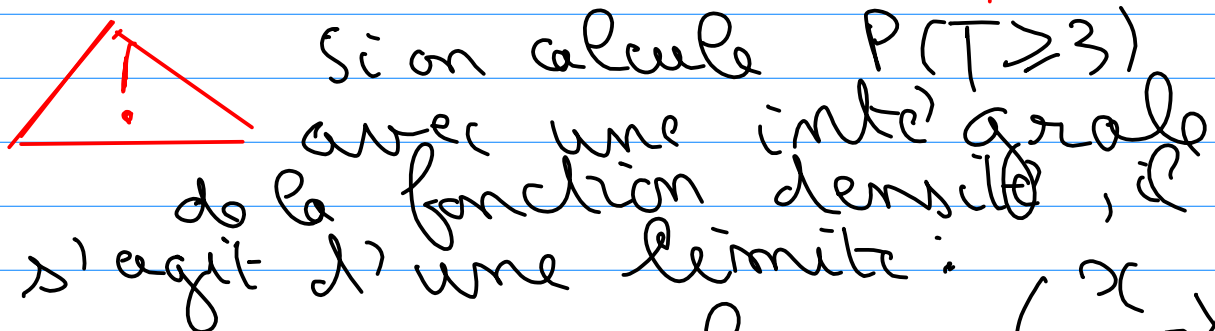 ! Si on calcule P(T⩾3)
avec une intégrale
de la fonction densité, il
s'agit d'une limite :
x